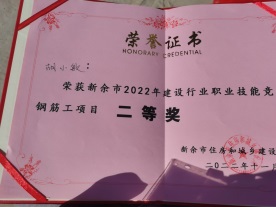 荣誉证书
HONORARY CREDENTIAL
小敏:
荣获新余市2022年建设行业职业技能竞
钢筋工项目 二等奖
新余市住房和城乡建设
二〇二二年十一月